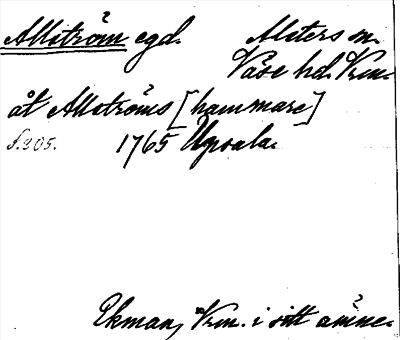 Allström egd. Alsters sn.
Väse hd. Vrm.
åt Allströms [hammare]
s. 205. 1765 Upsala.
Ekman, Vrm. i sitt ämne.